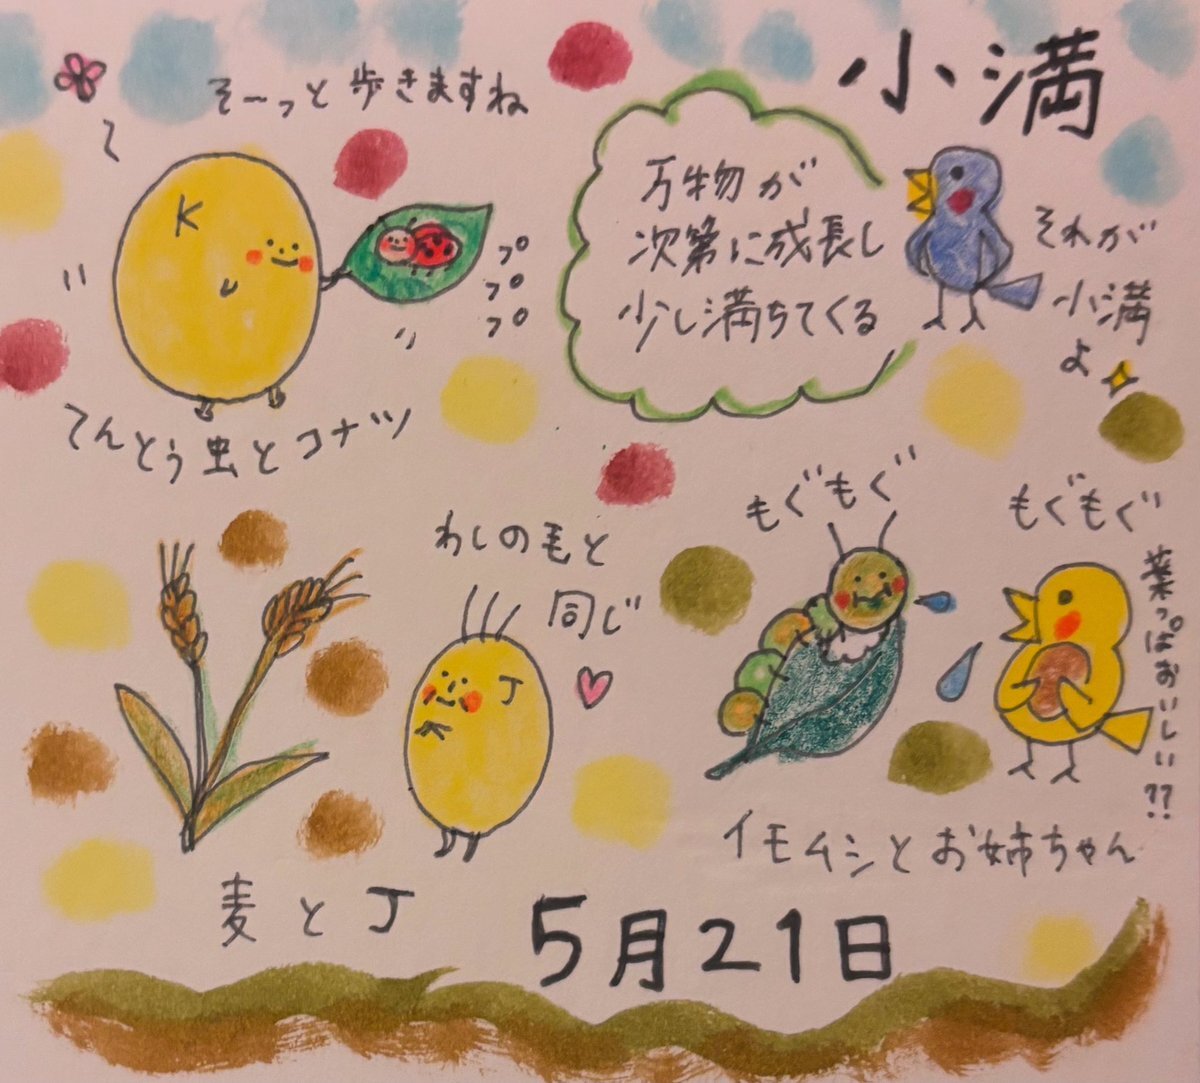 小満
そーっと歩きますね
K
プ
プ
プ
てんとう虫とコナツ
万物が
次第に成長し
少し満ちてくる
それが
小満
よ
わしの毛と
同じ
J
麦とJ
もぐもぐ
もぐもぐ
葉っぱおいしい??
イモムシとお姉ちゃん
5月21日